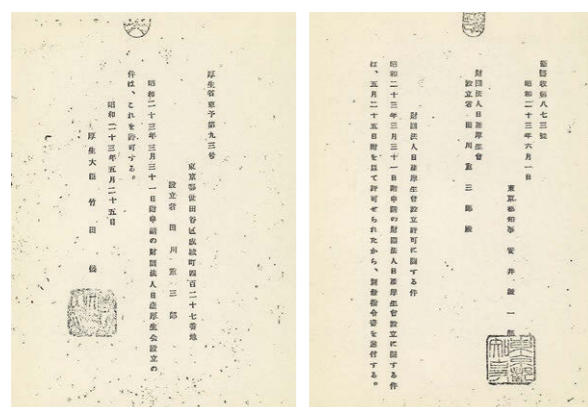 厚生省東予第九三号
東京都世田谷区成城町四百二十七番地
設立者 田川重三郎
昭和二十三年三月三十一日附申請の財団法人日産厚生会設立の
件は、これを許可する。
昭和二十三年五月二十五日
厚生大臣 竹田儀
昭和二十三年六月一日
東京都知事 安井誠一郎
財団法人日産厚生会
設立者 田川重三郎殿
財団法人日産厚生会設立許可に関する件
昭和二十三年三月三十一日附申請の財団法人日産厚生会設立に関する件
は、五月二十五日附を以て許可せられたから、
する。